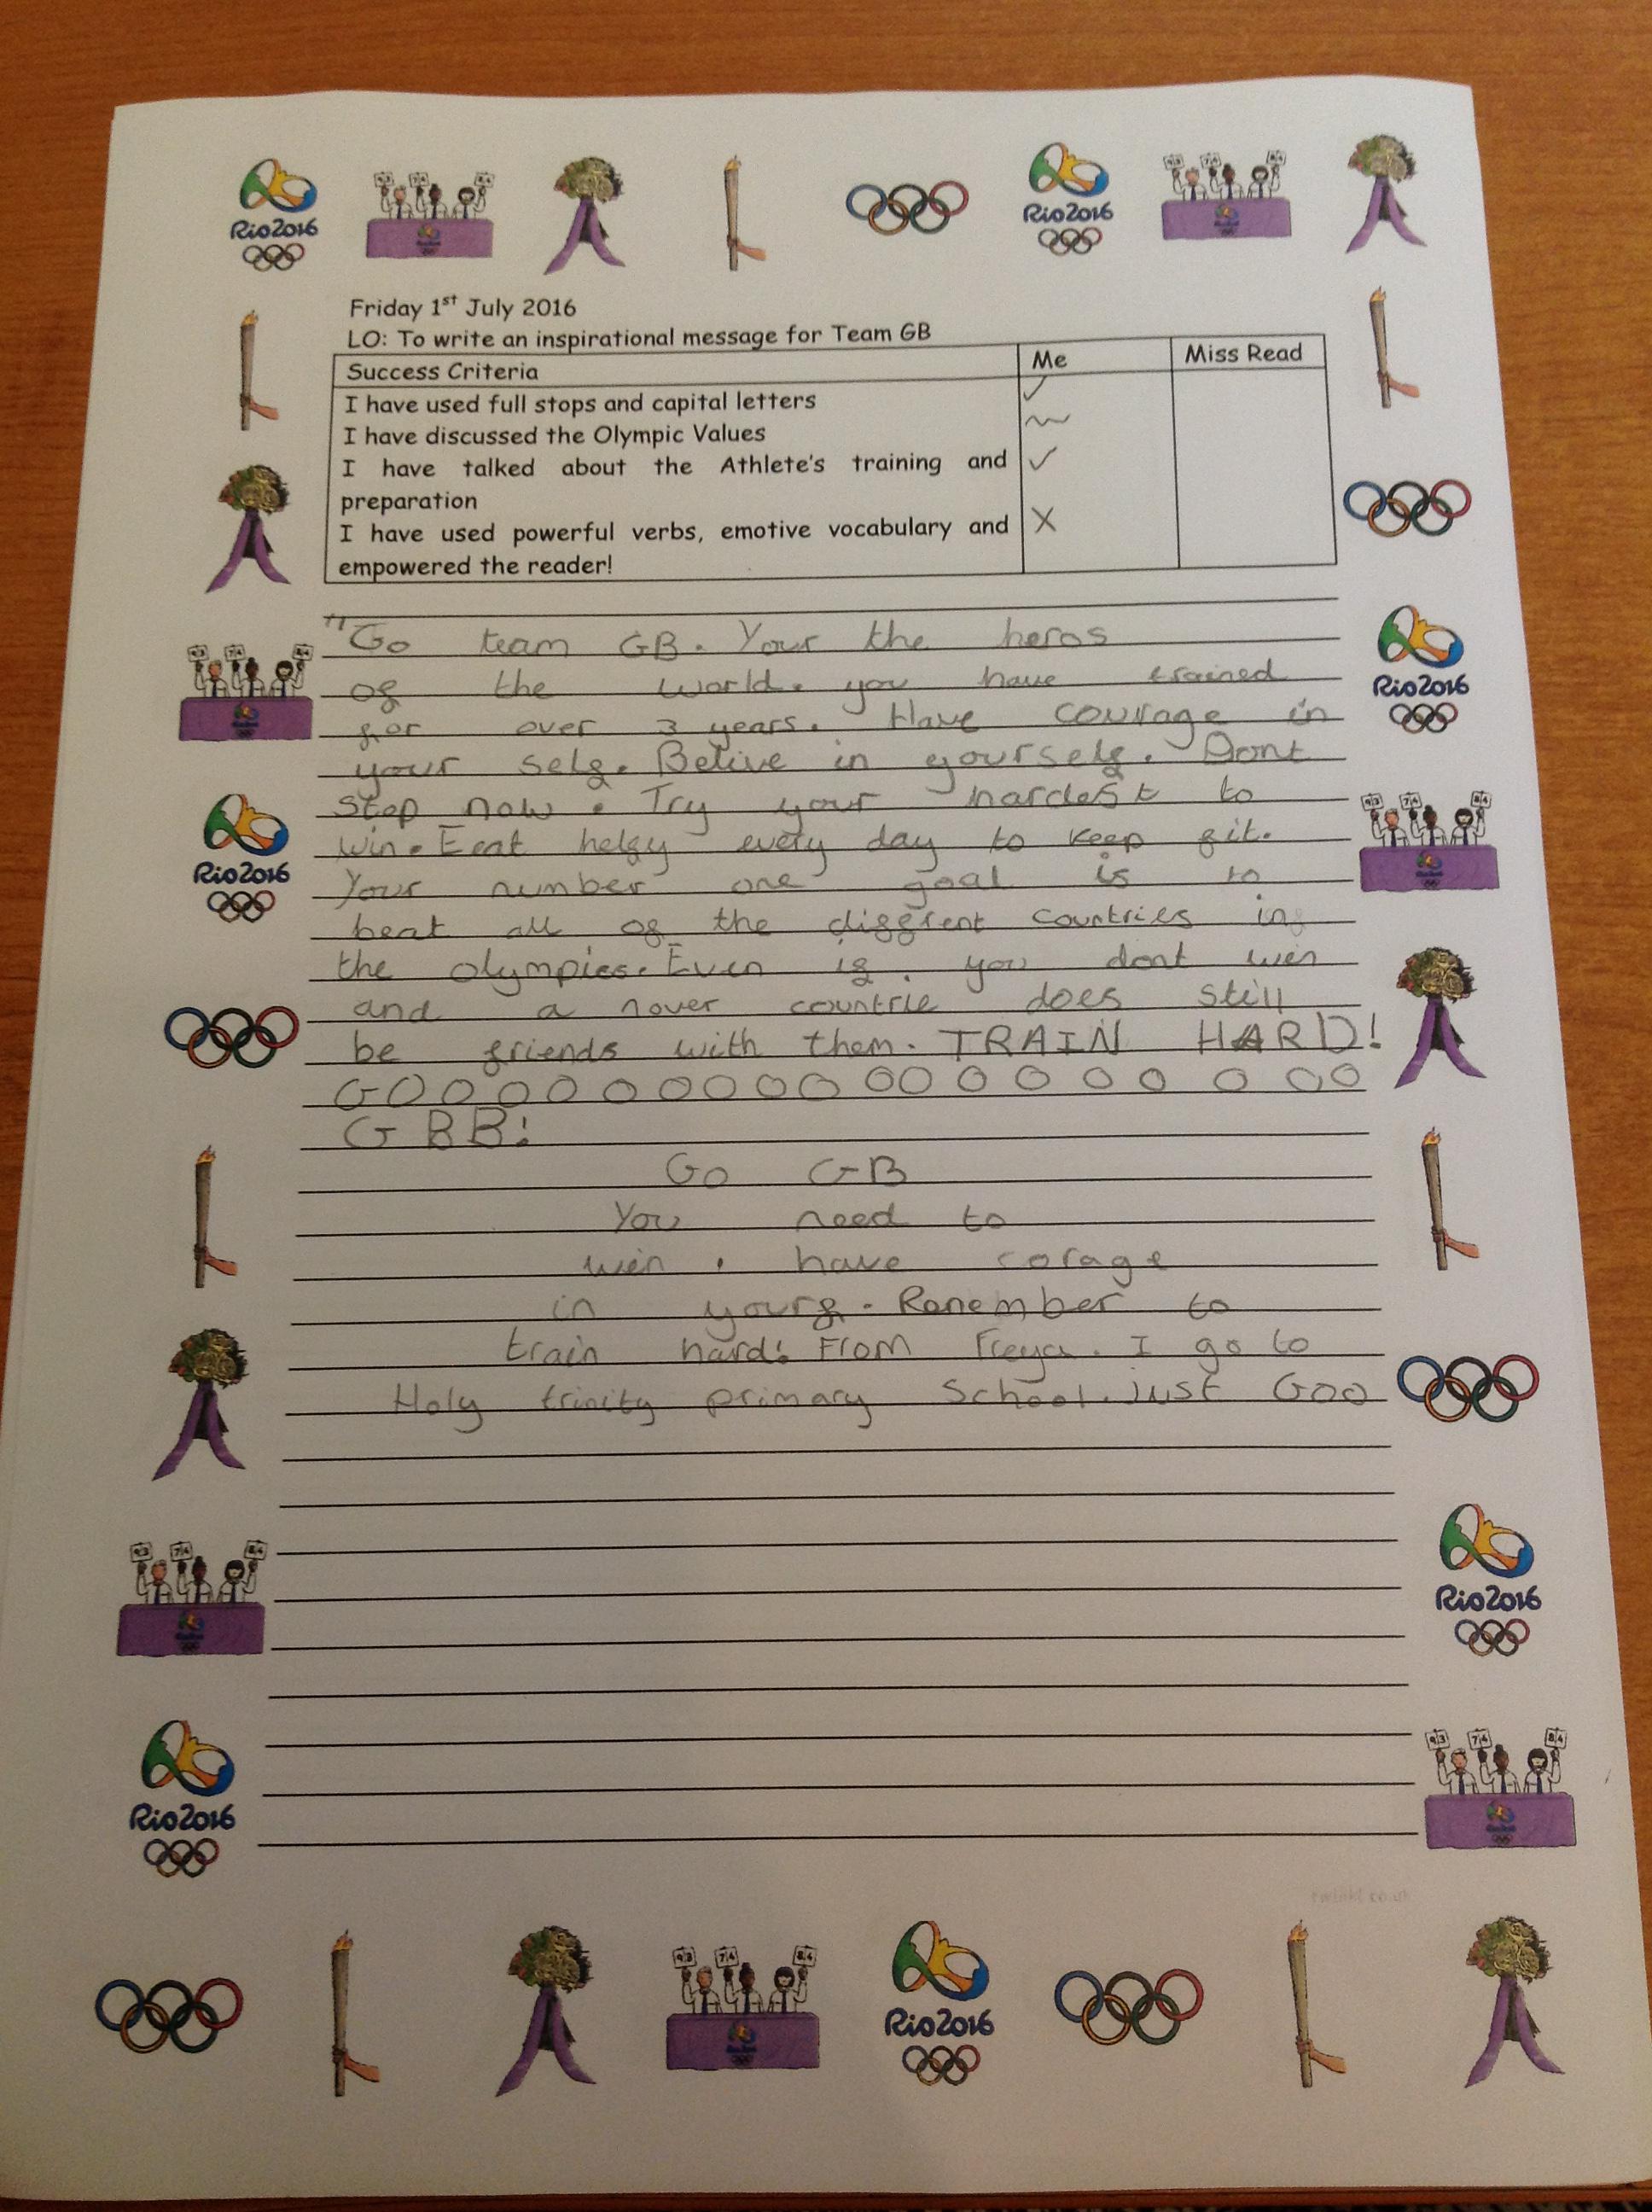 Rio2016
Rio2016
Friday 1st July 2016
LO: To write an inspirational message for Team GB
Success Criteria Me Miss Read
I have used full stops and capital letters ✓
I have discussed the Olympic Values ~
I have talked about the Athlete's training and ✓
preparation
I have used powerful verbs, emotive vocabulary and X
empowered the reader!
"Go team GB. Your the heros
of the world. you have trained
for over 3 years. Have courage in
your self. Belive in yourself. Dont
Stop now. Try your hardest to
win. Eeat helfy every day to keep fit.
Your number one goal is to
beat all of the diffrent countries in
the olympics. Even if you dont win
and a nover countrie does still
be friends with them. TRAIN HARD!
GOOOOOOOOOOOOOOOOOO
GBB!
Go GB
You need to
win. have corage
in yourf. Ronember to
train hard! From Freya. I go to
Holy trinity primary School. Just Goo
Rio2016
Rio2016
Rio2016
Rio2016
twinkl.co.uk
Rio2016